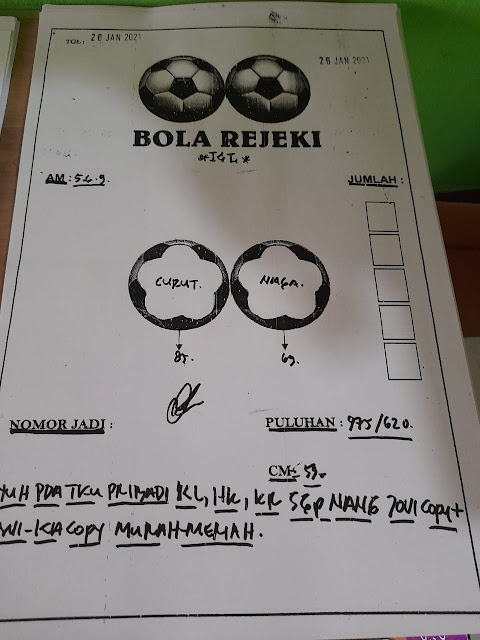 TGL: 26 JAN 2021
26 JAN 2021
BOLA REJEKI
*IGL*
AM : 5.6.9.
JUMLAH :
CURUT. NIAGA.
85. 69.
NOMOR JADI : PULUHAN : 975/620.
CM: 59
PDA TKU PRIBADI KL, HK, KR SGP NANG JOVI COPY+
WI-KIA COPY MURAH-MERIAH.